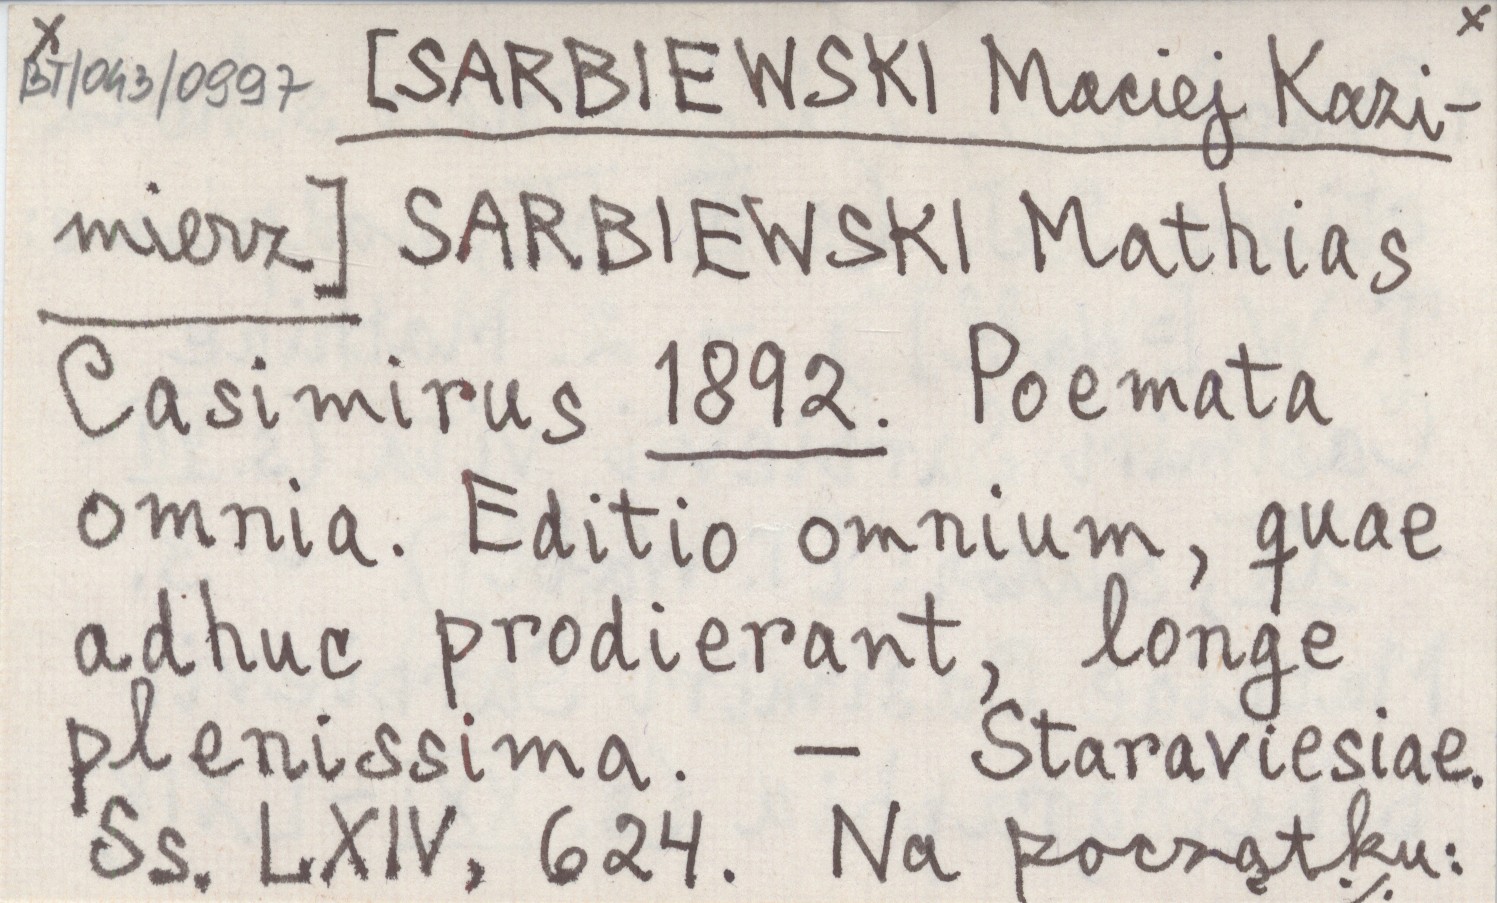 x x
BT/043/0997 [SARBIEWSKI Maciej Kazi-
mierz] SARBIEWSKI Mathias
Casimirus 1892. Poemata
omnia. Editio omnium, quae
adhuc prodierant, longe
plenissima. — Staraviesiae.
Ss. LXIV, 624. Na początku: